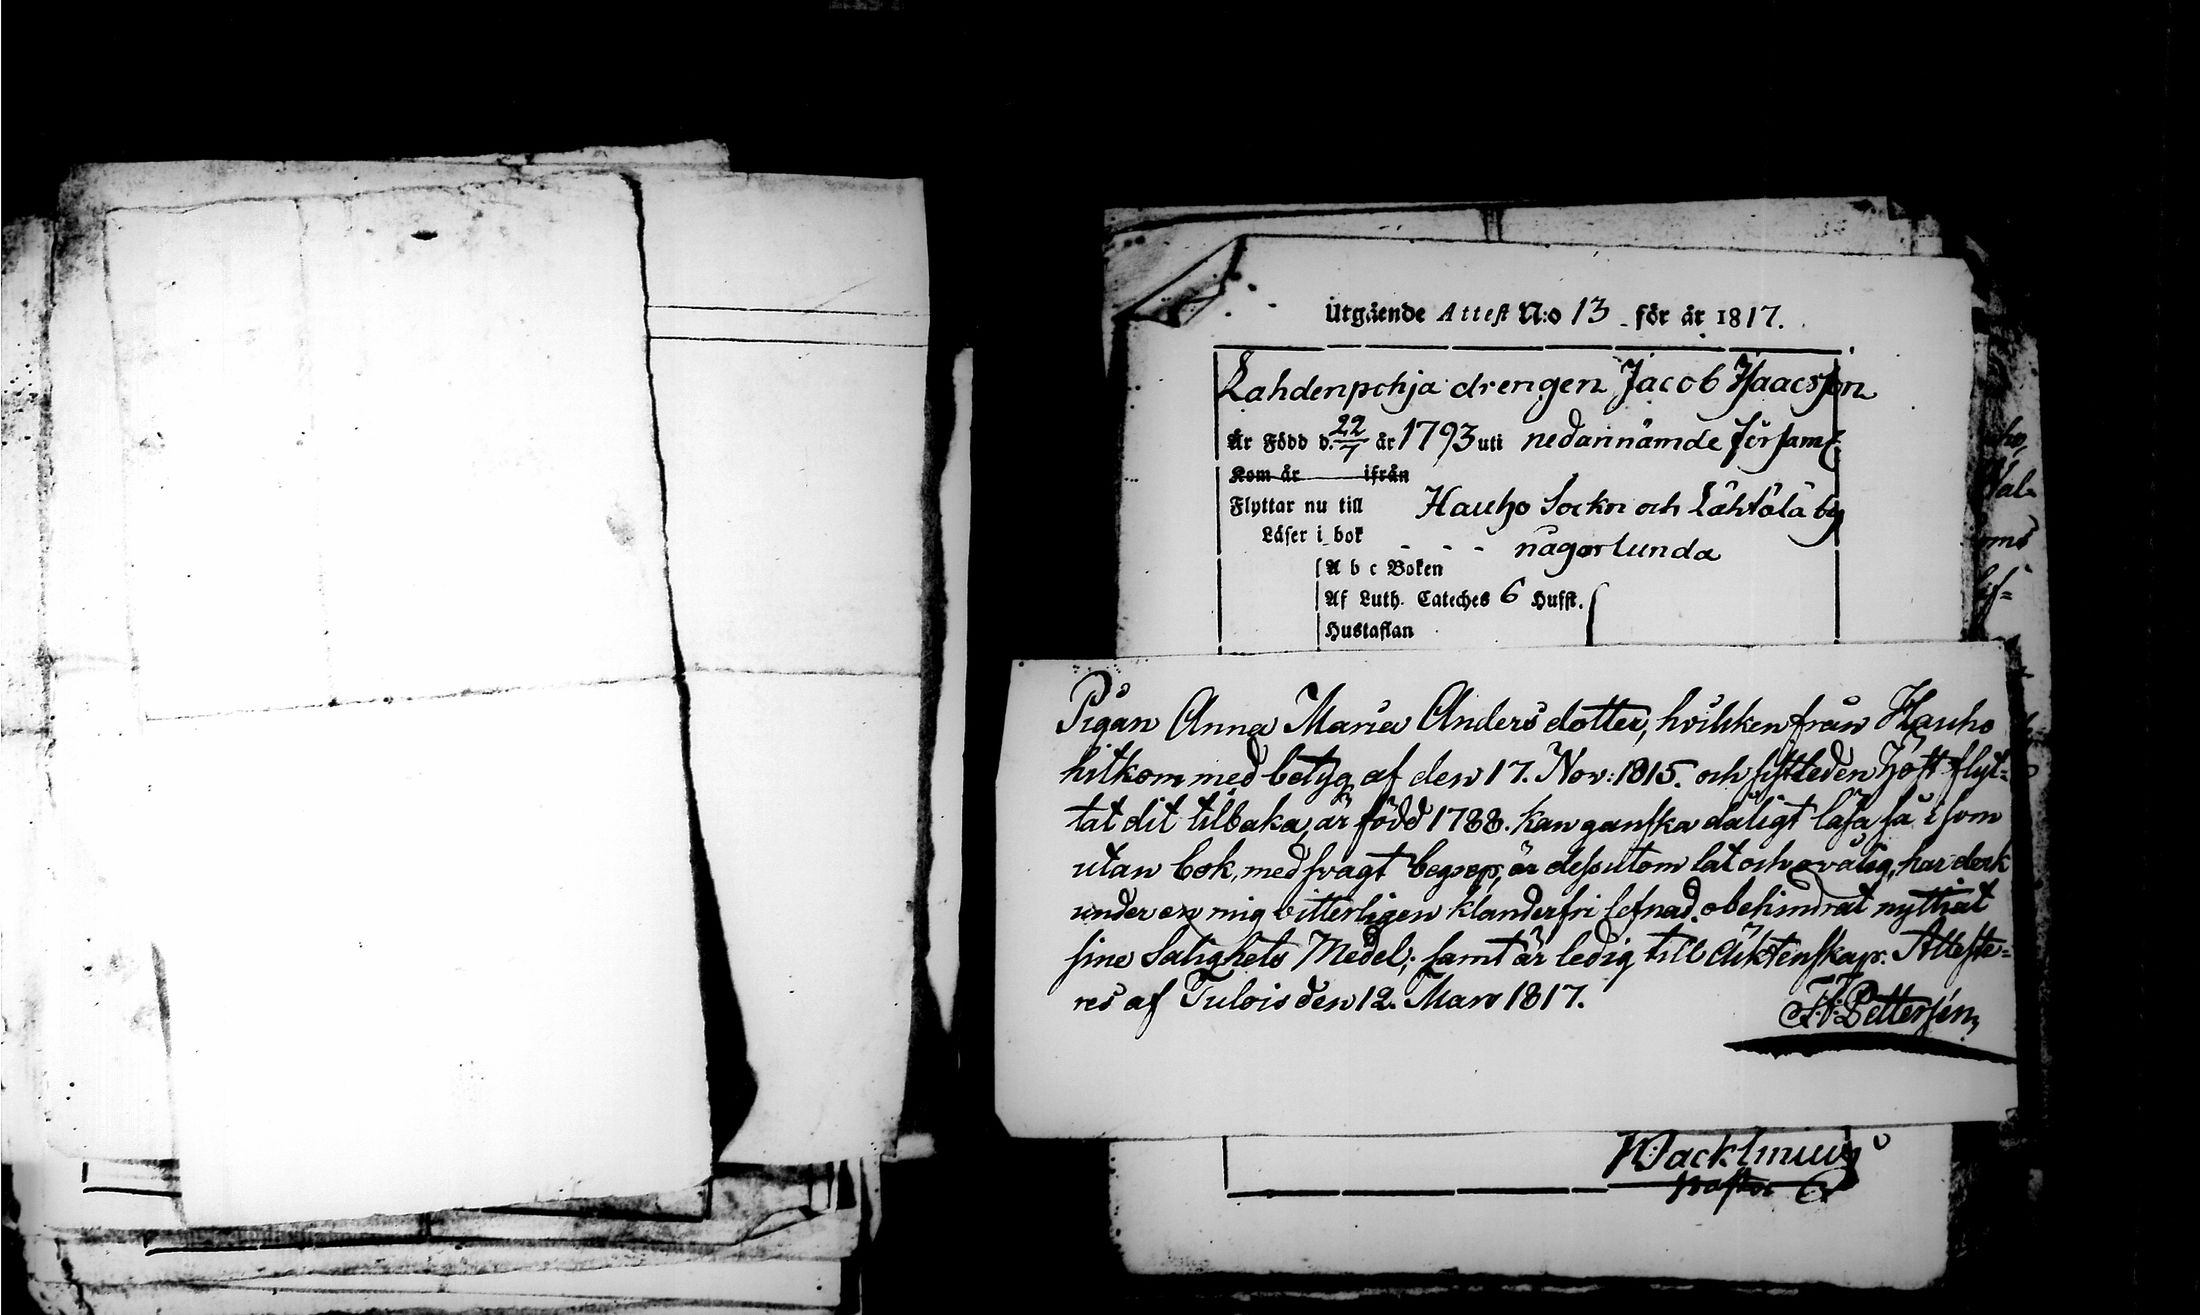 Utgående Attest N:o 13 för år 1817.
Lahdenpohja drengen Jacob Isaacsson
Är Född d. 22/7 år 1793 uti nedannämde Församl
Kom år ifrån
Flyttar nu till Hauho Sockn och Lähtölä by
Läser i bok - - - någorlunda
A b c Boken
Af Luth. Cateches 6 Hufst.
Hustaflan
Pigan Anna Maria Anders dotter, hvilken från Hauho
hitkom med betyg af den 17. Nov: 1815. och sistleden Höst flyt=
tat dit tilbaka, är född 1788. kan ganska dåligt läsa så i som
utan bok, med svagt begrep, är dessutom lat och ovälig, har dock
under en mig vitterligen klanderfri lefnad obehindrat nyttjat
sine Salighets Medel; samt är ledig till Äktenskap. Atteste=
res af Tulois den 12. Mars 1817.
Pettersén,
Wacklinius
Pastor